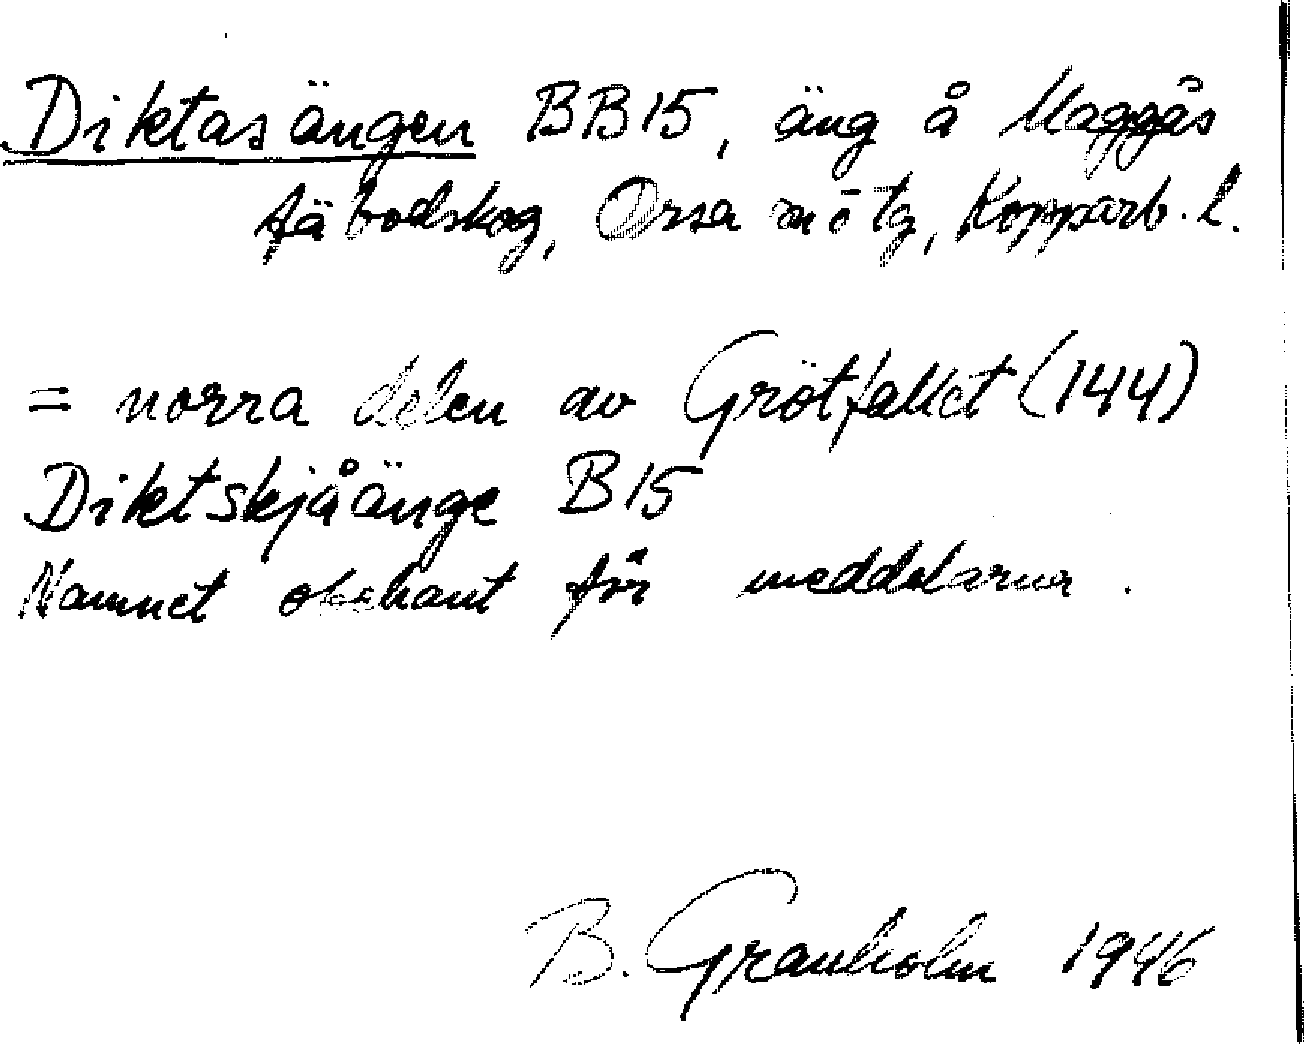 Diktasängen BB15, äng å Maggås
fäbodskog, Orsa sn ö tg, Kopparb. l.
= norra delen av Grötfallet (144)
Diktskjåänge B15
Namnet obekant för meddelarna.
B. Granholm 1946